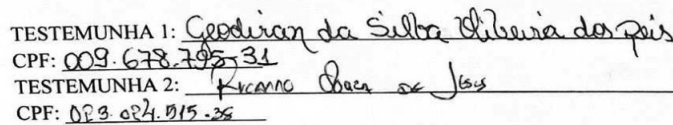 TESTEMUNHA 1: Geodiran da Silva Oliveira dos Reis
CPF: 009.678.795-31
TESTEMUNHA 2: de Jesus
CPF: 023.024.515-35